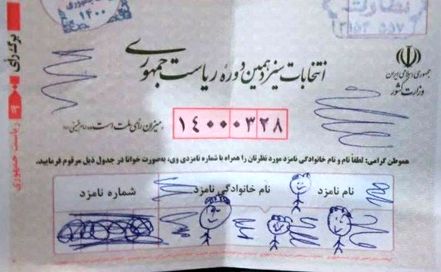 برگ رأی
ریاست جمهوری
۱۴۰۰
نظارت
انتخابات سیزدهمین دوره ریاست جمهوری
جمهوری اسلامی ایران
وزارت کشور
میزان رأی ملت است
۱۴۰۰۰۳۲۸
هموطن گرامی: لطفاً نام و نام خانوادگی نامزد مورد نظرتان را همراه با شماره نامزدی وی، به‌صورت خوانا در جدول ذیل مرقوم فرمایید.
نام نامزد
نام خانوادگی نامزد
شماره نامزد